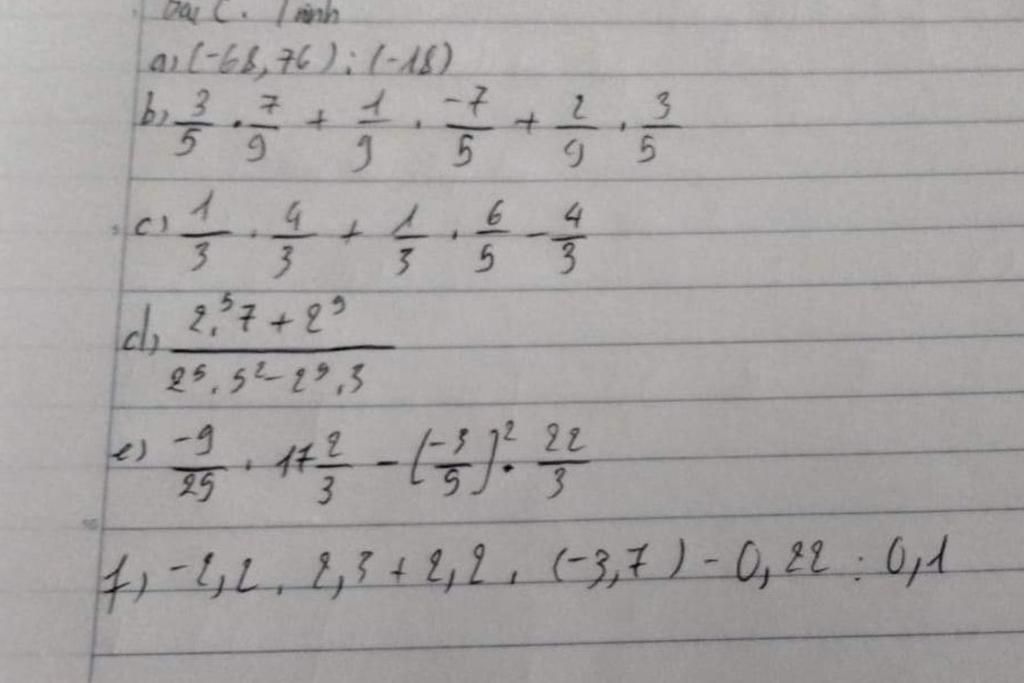 Bài 2. Tính
a, (-68,76) : (-18)
b, 3/5 . 7/9 + 1/9 . -7/5 + 2/9 . 3/5
c) 1/3 . 4/3 + 1/3 . 6/5 - 4/3
d, (2.⁵7 + 2⁹) / (2⁵.5² - 2⁹.3)
e) -9/25 . 17 2/3 - (-3/5)² . 22/3
f, -2,2 . 2,3 + 2,2 . (-3,7) - 0,22 : 0,1